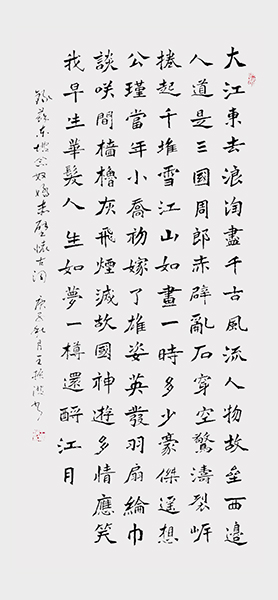 大江東去浪淘盡千古風流人物故壘西邊
人道是三國周郎赤壁亂石穿空驚濤裂岸
捲起千堆雪江山如畫一時多少豪傑遥想
公瑾當年小喬初嫁了雄姿英發羽扇綸巾
談咲間檣櫓灰飛煙滅故國神遊多情應笑
我早生華髮人生如夢一樽還酹江月
錄蘇東坡念奴嬌赤壁懷古詞